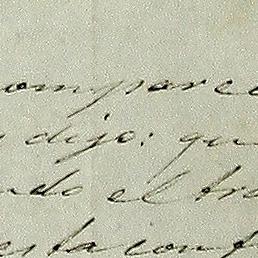 omparec
dijo: qu
ndo el tra
esta conf